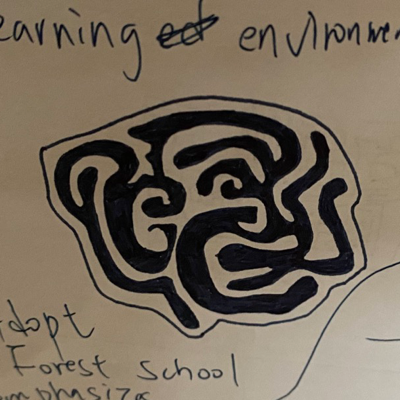 earning environme
adopt
Forest school
emphasize